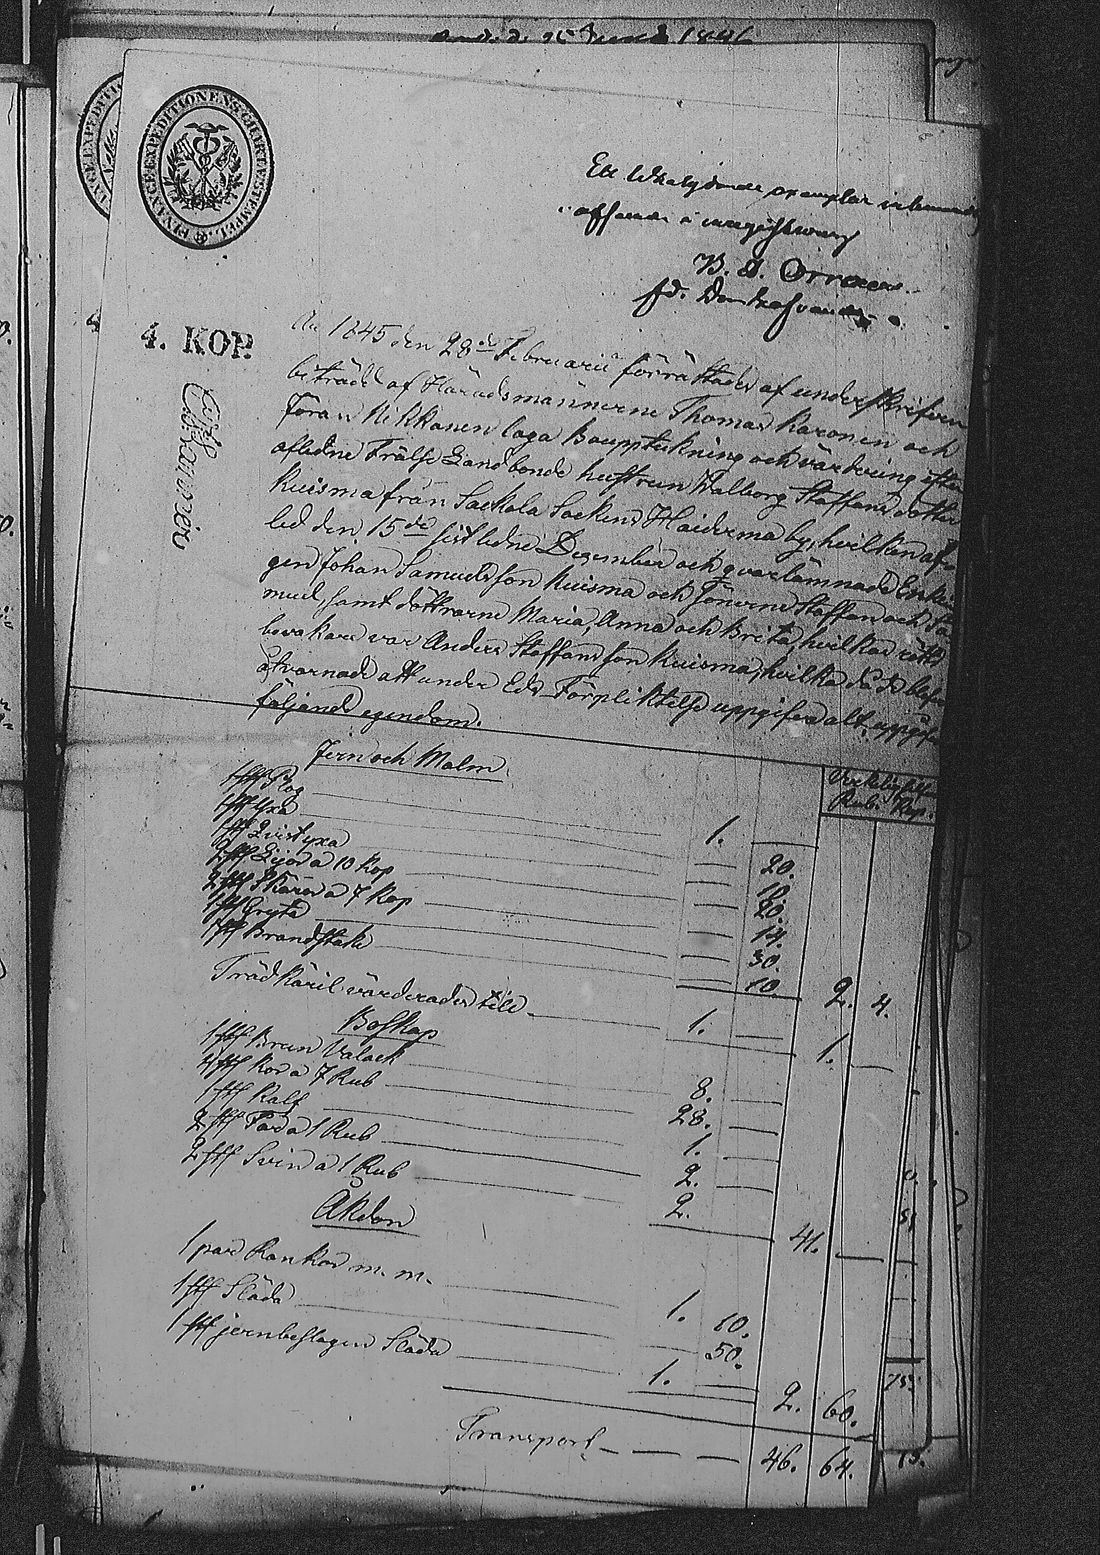 FINANCE-EXPEDITIONENS CHARTÆ STEMPEL.
4. KOP.
Ett exemplar
År 1845 den 28de Februarii förrättades af underskrifven
biträdd af Häradsmännerne Thomas Karonen och
Jöran Nikkanen laga Bouppteckning och värdering efter
aflidne Frälse Landbonde hustrun Walborg Staffansdotter
Kuisma från Sackola Sockens Haiderma by, hvilken af-
led den 15de sistledne December och qvarlämnade Enklin-
gen Johan Samuelsson Kuisma och Sönerne Staffan och Sa-
muel, samt döttrarne Maria, Anna och Brita, hvilkas rätts
bevakare var Anders Staffansson Kuisma, hvilka då de blefvo
åtvarnade att under Eds Förpliktelse uppgifva alt, uppgåfvo
följande egendom.
Jern och Malm.
Rub. Kop.
1 st Plog 1.
1 st Yxa 20.
1 st Qvistyxa 10.
2 st Lijor a 10 Kop 20.
2 st Skäror a 7 Kop 14.
1 st Gryta 30.
1 st Brandstake 10. 2. 4.
Trädkäril värderades till 1. 1.
Boskap
1 st Brun Valack 8.
4 st Kor a 7 Rub 28.
1 st Kalf 1.
2 st Får a 1 Rub 2.
2 st Svin a 1 Rub 2. 41.
Åkdon
1 par Kankor m. m. 1. 10.
1 st Släda 50.
1 st jernbeslagen Släda 1. 2. 60.
Transport 46. 64.